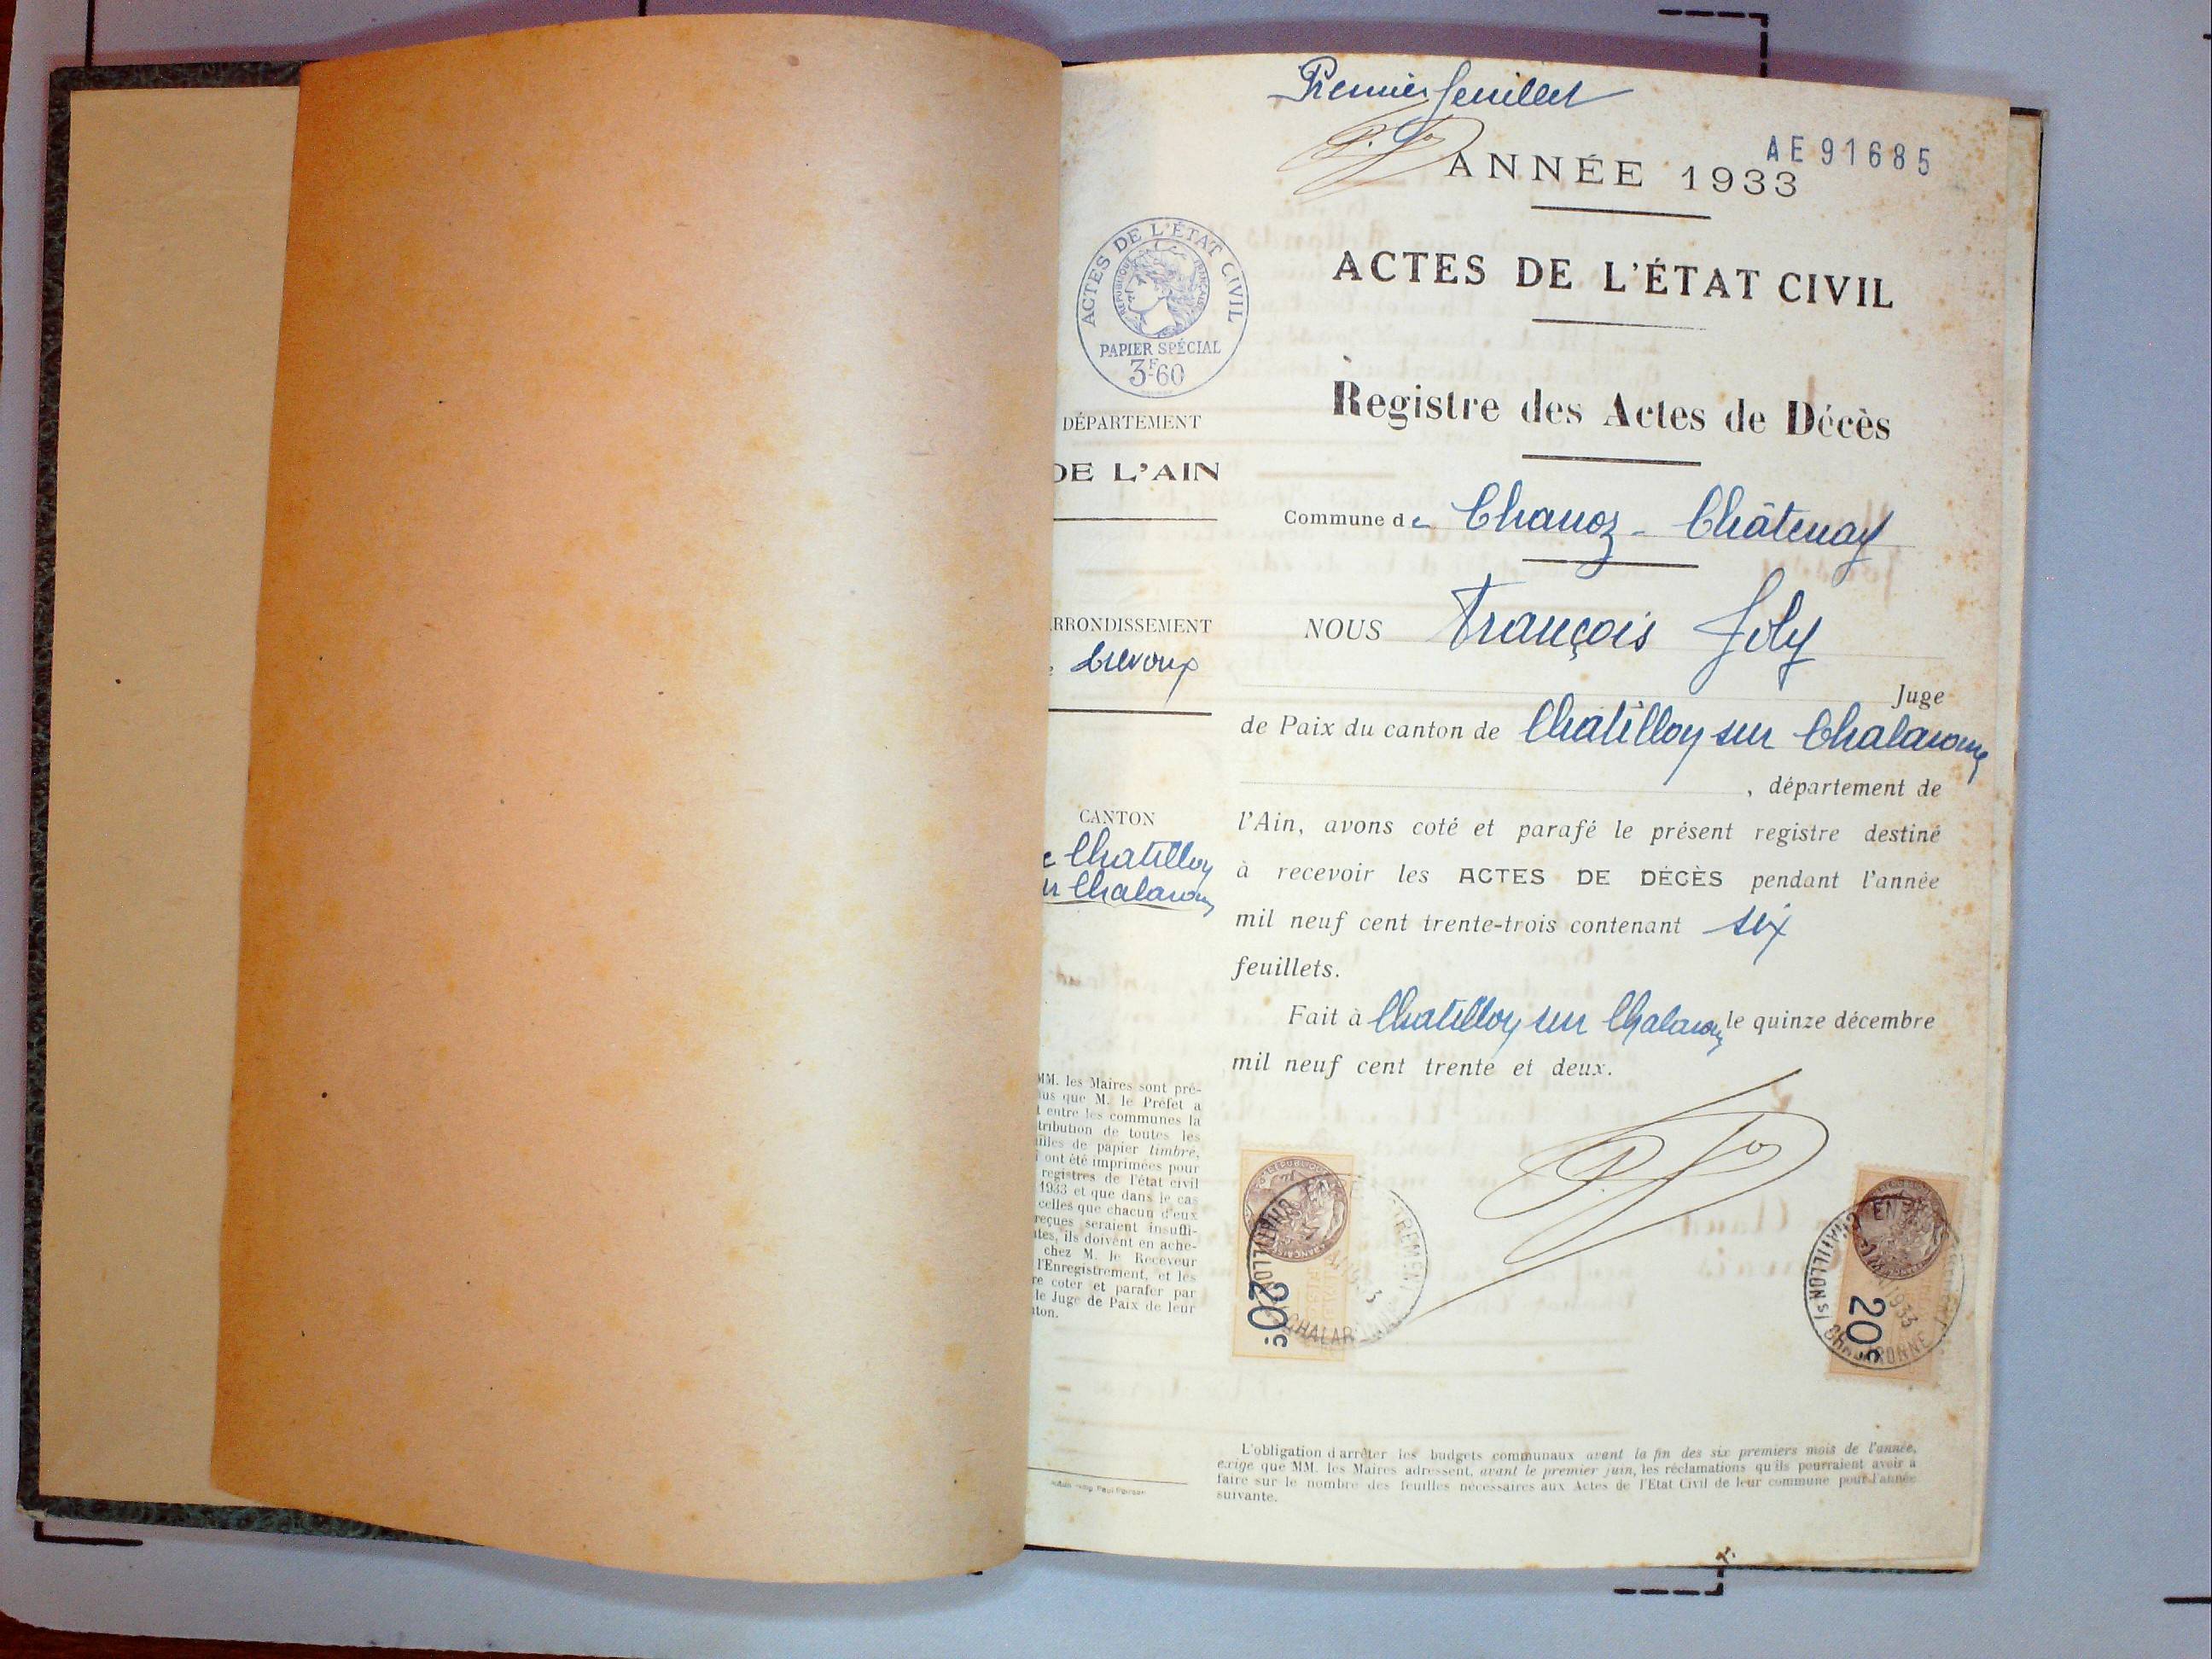 Premier feuillet
AE 91685
ANNÉE 1933
ACTES DE L'ÉTAT CIVIL
RÉPUBLIQUE FRANÇAISE
PAPIER SPÉCIAL
3F60
ACTES DE L'ÉTAT CIVIL
Registre des Actes de Décès
DÉPARTEMENT
DE L'AIN
Commune de Chanoz-Châtenay
ARRONDISSEMENT
Trévoux
NOUS François Joly
Juge
de Paix du canton de Chatillon sur Chalaronne
, département de
CANTON
Chatillon
Chalaronne
l'Ain, avons coté et parafé le présent registre destiné
à recevoir les ACTES DE DÉCÈS pendant l'année
mil neuf cent trente-trois contenant six
feuillets.
Fait à Chatillon sur Chalaronne le quinze décembre
mil neuf cent trente et deux.
MM. les Maires sont pré-
que M. le Préfet a
entre les communes la
tribution de toutes les
de papier timbré,
ont été imprimées pour
registres de l'état civil
1933 et que dans le cas
celles que chacun d'eux
reçues seraient insuffi-
ils doivent en ache-
chez M. le Receveur
l'Enregistrement, et les
coter et parafer par
le Juge de Paix de leur
20c
20c
CHATILLON S/ CHALARONNE
1933
L'obligation d'arrêter les budgets communaux avant la fin des six premiers mois de l'année,
exige que MM. les Maires adressent, avant le premier juin, les réclamations qu'ils pourraient avoir à
faire sur le nombre des feuilles nécessaires aux Actes de l'Etat Civil de leur commune pour l'année
suivante.